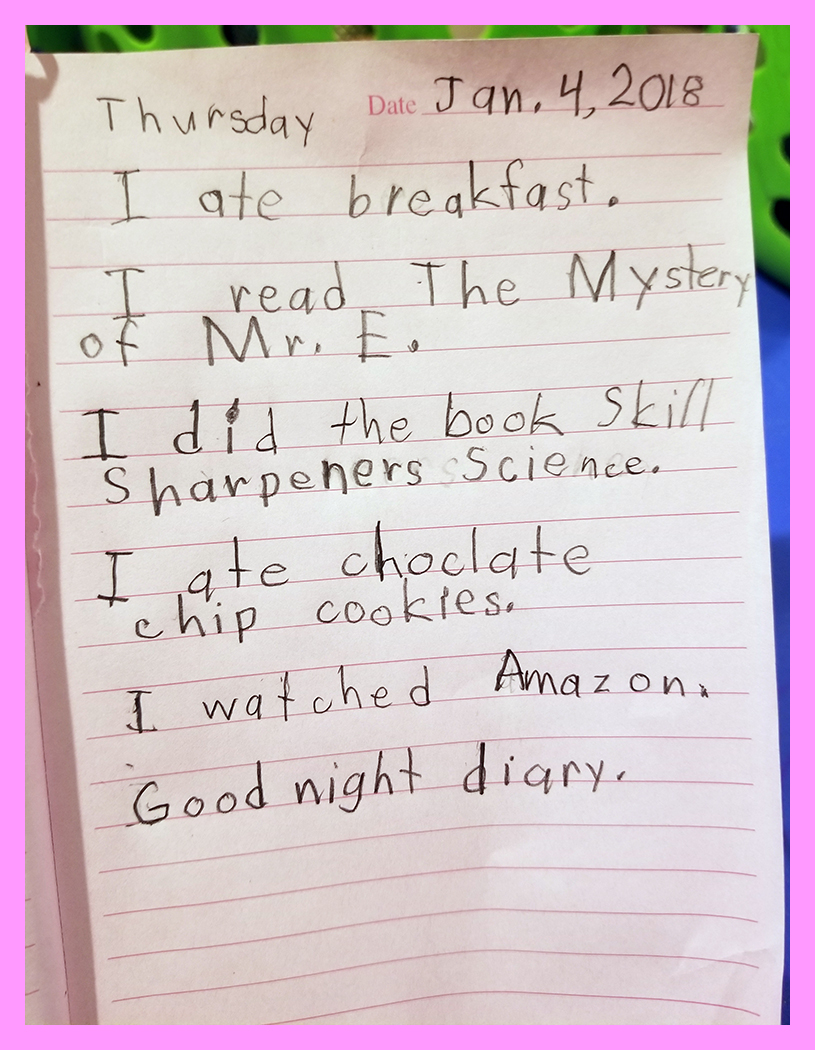 Thursday Date Jan. 4, 2018
I ate breakfast.
I read The Mystery
of Mr. E.
I did the book Skill
Sharpeners Science.
I ate choclate
chip cookies.
I watched Amazon.
Good night diary.